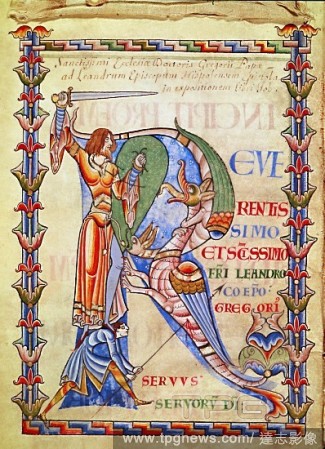 Sanctissimi Ecclesiæ Doctoris Gregorii Papæ
ad Leandrum Episcopum Hispalensem Epistola
In expositionem
REVE
RENTIS
SIMO
ET SC̄ISSIMO
FR̄I LEANDRO
COEP̄O
GREGORI'
SERVVS
SERVORV̄ DĪ
www.tpgnews.com/ 達志影像